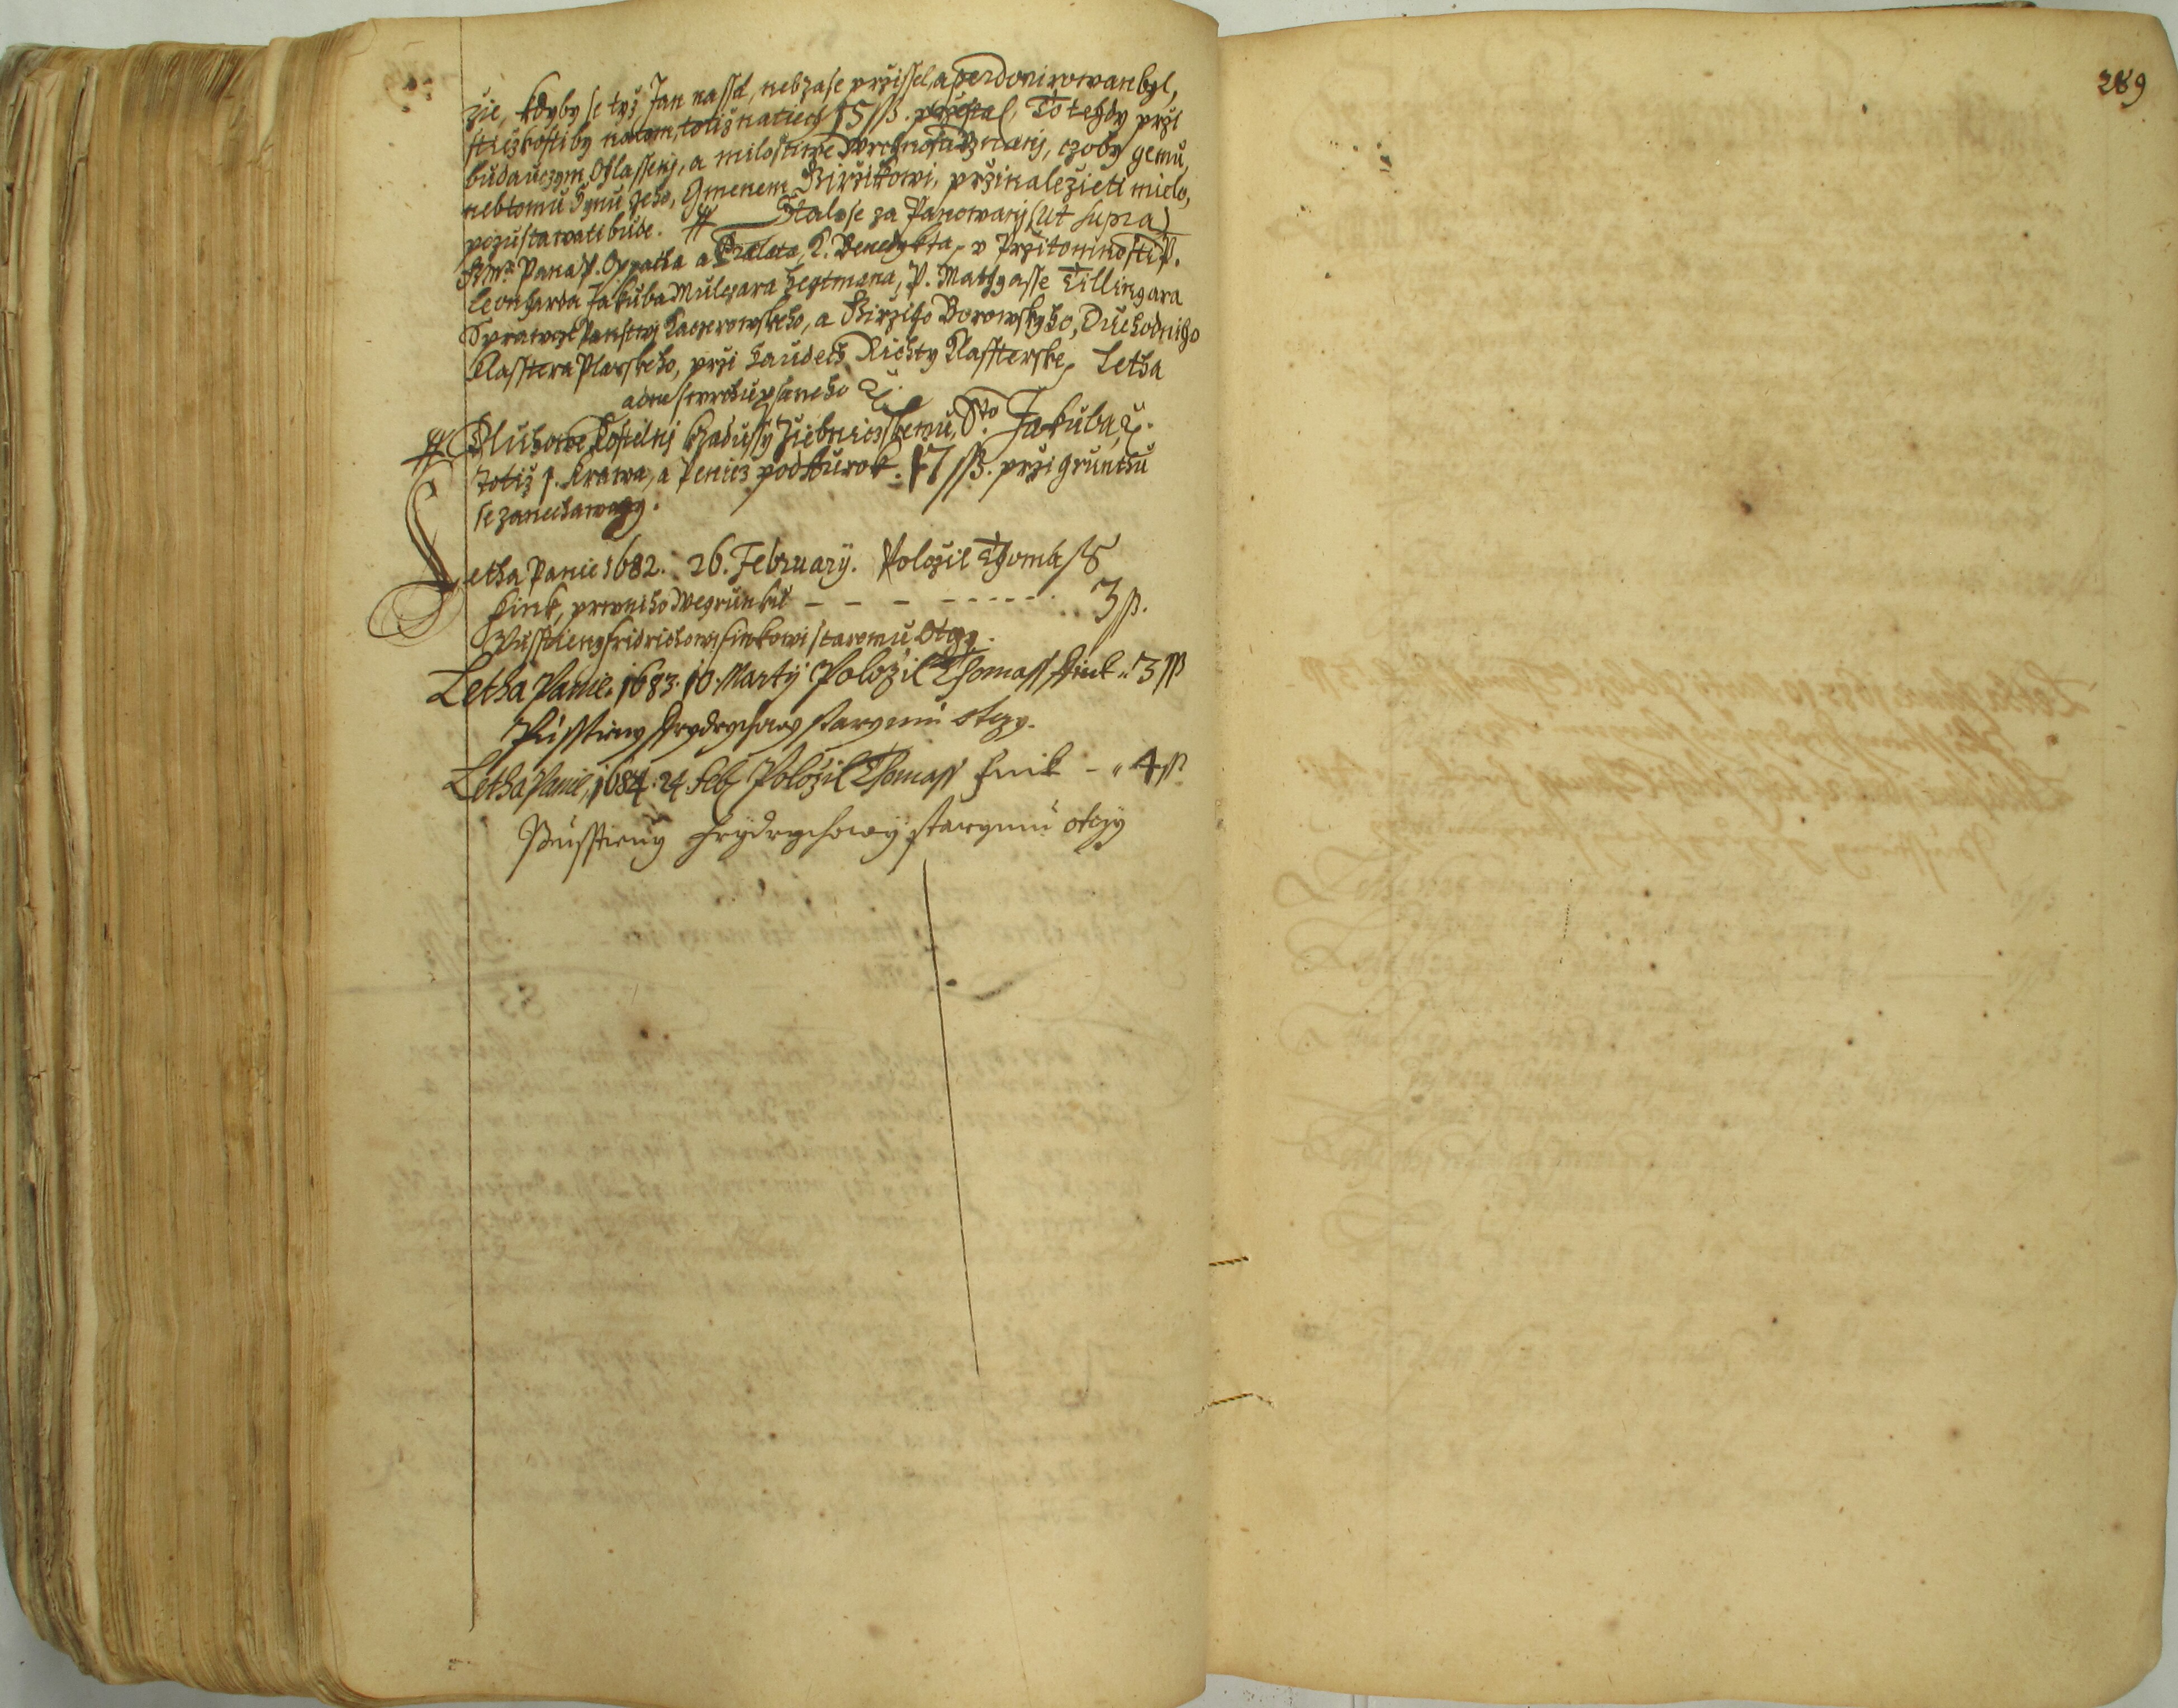 zie, kdyby se tyž Jan nassel, neb zase przissel, a perdonirowan byl,
stiezkosti by na tom, totiz na tiech 15 ß. To tehdy przi
budauczym Ohlassenj, a milostiwe Wrchnosti Vznanj, czoby gemu,
neb tomu Synu geho, Gmenem Girzikowi, przinalezieti mielo,
pozustawati bude. Stalo se za Panowanj (ut supra)
Pana P. Oppatha a Pralata, K. Benedykta, v Przitomnosti P.
Leonharda Jakuba Mulczara Hegtmana, P. Mathgasse Tillingara
Sprawcze Panstwj Kaczerowskeho, a Girziho Borowskyho, Duchodniho
Klasstera Plaskeho, przi Saudech Richty Klassterske, Letha
a dne swrchupsaneho
Dluhowe Kostelnj Zadussy Sto Jakuba,
totiz 1. Krawa, a Peniez pod Aurok. 17 ß. przi Grunthu
se zanechawagy.
Letha Panie 1682. 26. February. Polozil Thomass
Fink, prwniho Wegrunku - - - - - - 3 ß.
Pusstieny Fridrichowi Finkowi staremu Otczy.
Letha Panie. 1683. 10. Marty Polozil Thomass Fink .. 3 ß
Pusstieny Frydrychowy starymu otczy.
Letha Panie, 1684. 24. Feb. Polozil Thomass Fink - " 4 ß
Pusstieny Frydrychowy starymu otczy
289